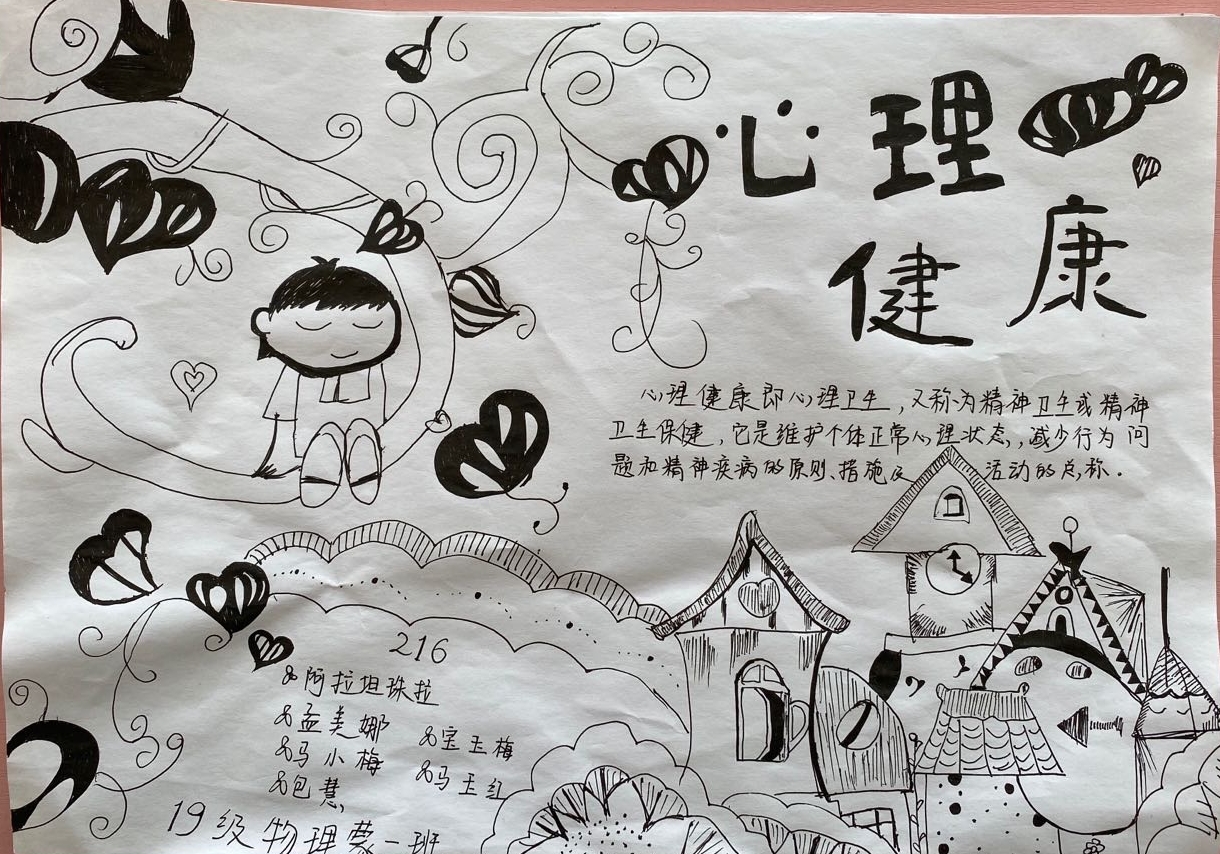 心理
健康
心理健康即心理卫生，又称为精神卫生或精神
卫生保健，它是维护个体正常心理状态，减少行为问
题和精神疾病的原则、措施及活动的总称。
216
阿拉坦珠拉
孟美娜
宝玉梅
马小梅
马玉红
包慧
19级物理蒙一班